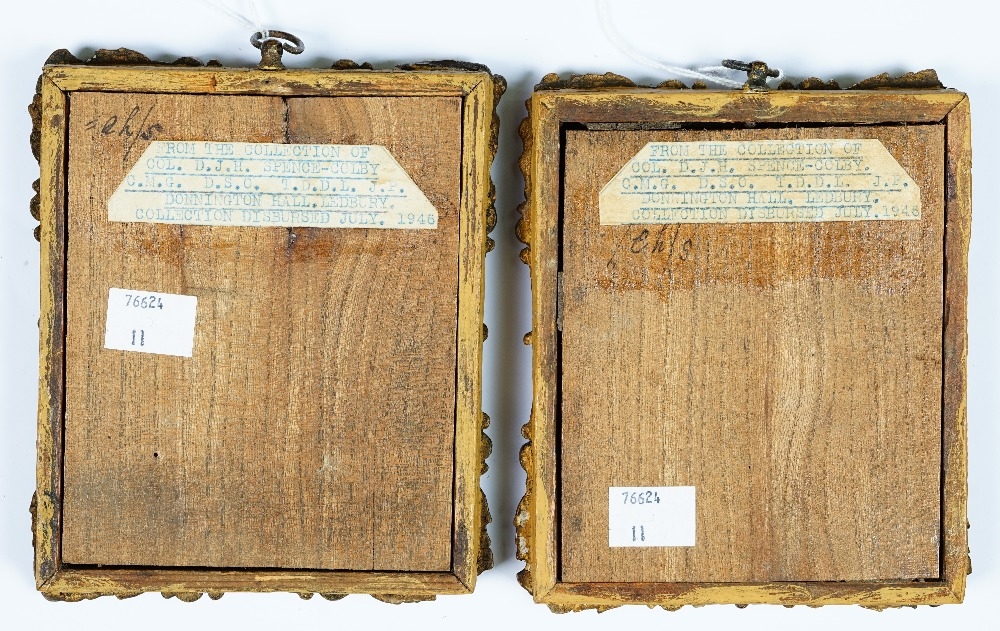 FROM THE COLLECTION OF
COL. D.J.H. SPENCE-COLBY
C.M.G. D.S.O. T.D.D.L. J.P.
DONNINGTON HALL, LEDBURY.
COLLECTION DISBURSED JULY. 1946
76624
11
FROM THE COLLECTION OF
COL. D.J.H. SPENCE-COLBY.
C.M.G. D.S.O. T.D.D.L. J.P.
DONNINGTON HALL, LEDBURY.
COLLECTION DISBURSED JULY. 1946
76624
11